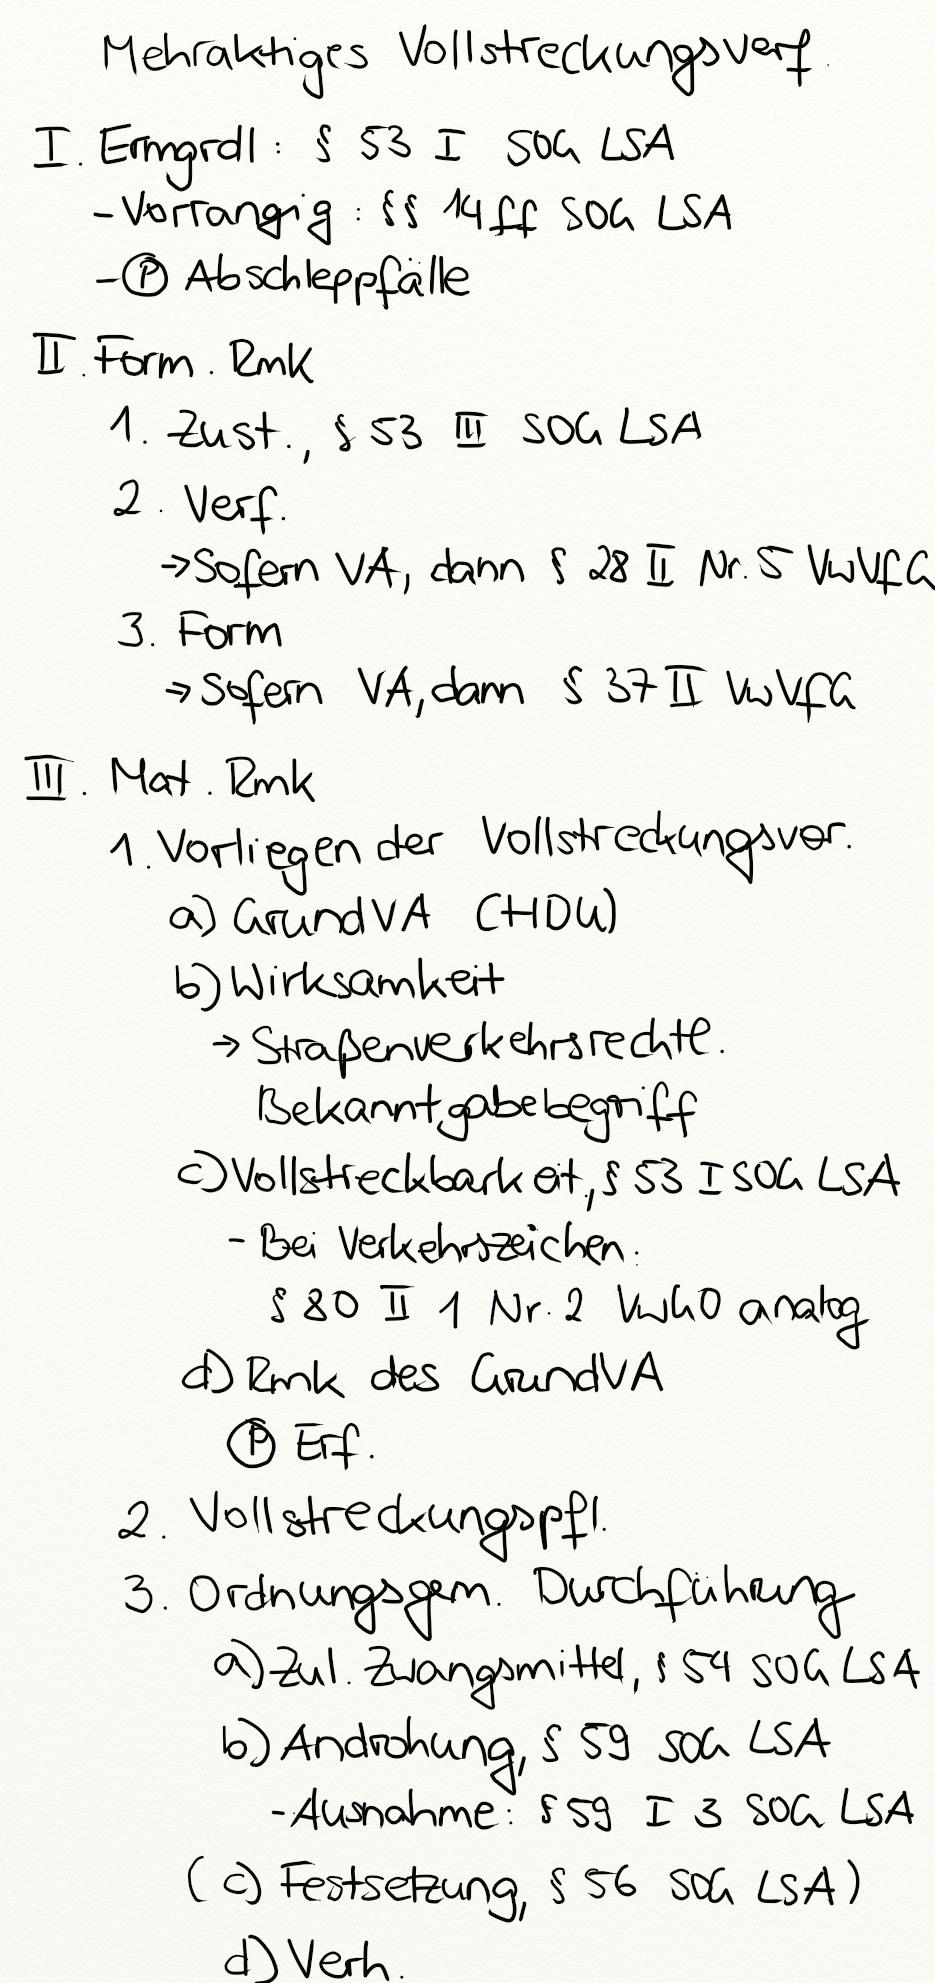 Mehraktiges Vollstreckungsverf.
I. Ermgrdl: § 53 I SOG LSA
- Vorrangig: §§ 14 ff SOG LSA
- Ⓟ Abschleppfälle
II. Form. Rmk
1. Zust., § 53 III SOG LSA
2. Verf.
→ Sofern VA, dann § 28 II Nr. 5 VwVfG
3. Form
→ Sofern VA, dann § 37 II VwVfG
III. Mat. Rmk
1. Vorliegen der Vollstreckungsvor.
a) GrundVA (HDU)
b) Wirksamkeit
→ Straßenverkehrsrechtl.
Bekanntgabebegriff
c) Vollstreckbarkeit, § 53 I SOG LSA
- Bei Verkehrszeichen:
§ 80 II 1 Nr. 2 VwGO analog
d) Rmk des GrundVA
Ⓟ Erf.
2. Vollstreckungspfl.
3. Ordnungsgem. Durchführung
a) Zul. Zwangsmittel, § 54 SOG LSA
b) Androhung, § 59 SOG LSA
- Ausnahme: § 59 I 3 SOG LSA
(c) Festsetzung, § 56 SOG LSA)
d) Verh.